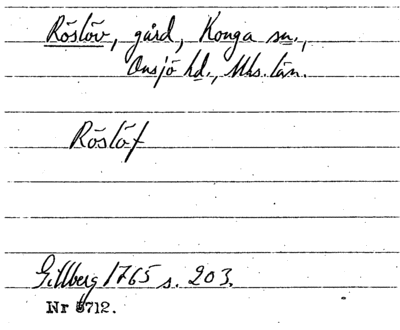 Röslöv, gård, Konga sn.,
Onsjö hd., Mhs. län.
Röslöf
Gillberg 1765 s. 203.
Nr 5712.